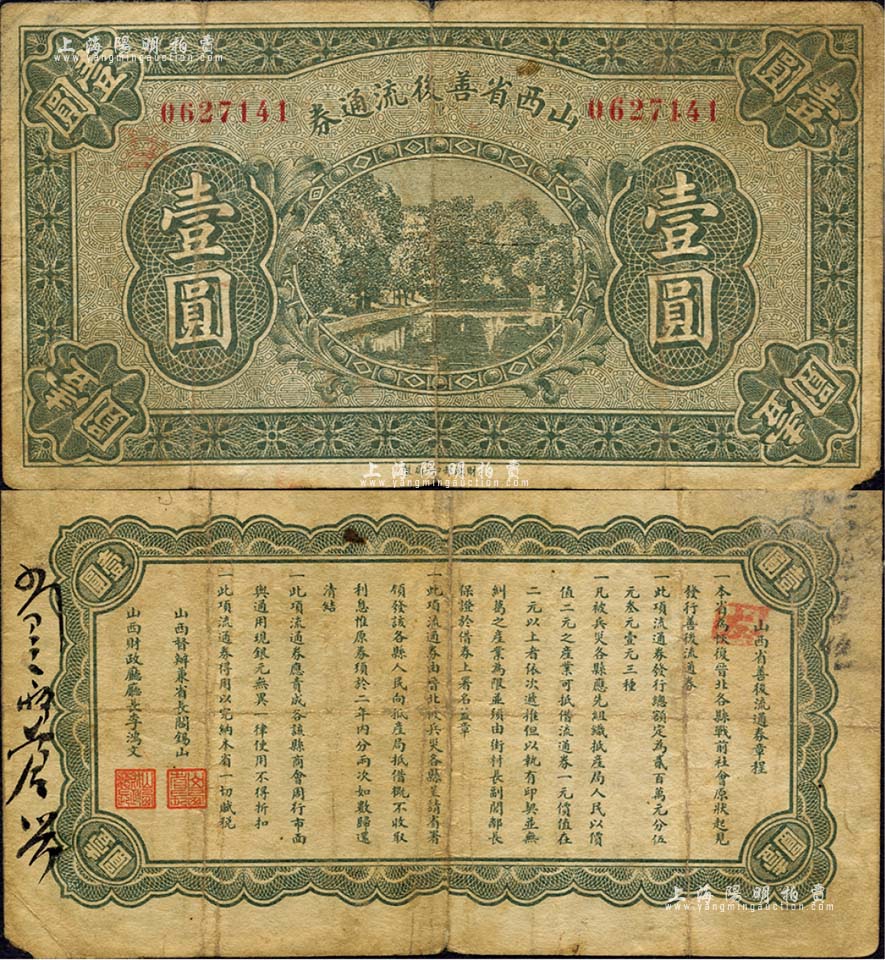 上海陽明拍賣
www.yangmingauction.com
山西省善後流通券
0627141
0627141
壹圓
壹圓
壹圓
壹圓
壹圓
壹圓
上海陽明拍賣
www.yangmingauction.com
壹圓
壹圓
山西省善後流通券章程
一本省為恢復晉北各縣戰前社會原狀起見
發行善後流通券
一此項流通券發行總額定為貳百萬元分伍
元叁元壹元三種
一凡被兵災各縣應先組織抵産局人民以價
值二元之産業可抵借流通券一元價值在
二元以上者依次遞推但以執有印契並無
糾葛之産業為限並須由街村長副閭鄰長
保證於借券上署名蓋章
一此項流通券由晉北被兵災各縣呈請省署
領發該各縣人民向抵産局抵借概不收取
利息惟原券須於二年內分兩次如數歸還
清結
一此項流通券應責成各該縣商會周行市面
與通用現銀元無異一律使用不得折扣
一此項流通券得用以完納本省一切賦税
山西督辦兼省長閻錫山
山西財政廳廳長李鴻文
壹圓
壹圓
上海陽明拍賣
www.yangmingauction.com